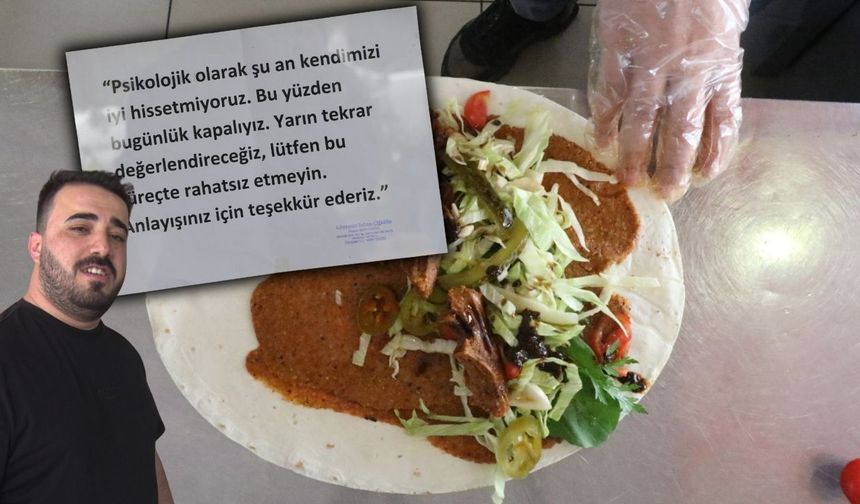 “Psikolojik olarak şu an kendimizi
iyi hissetmiyoruz. Bu yüzden
bugünlük kapalıyız. Yarın tekrar
değerlendireceğiz, lütfen bu
süreçte rahatsız etmeyin.
Anlayışınız için teşekkür ederiz.”